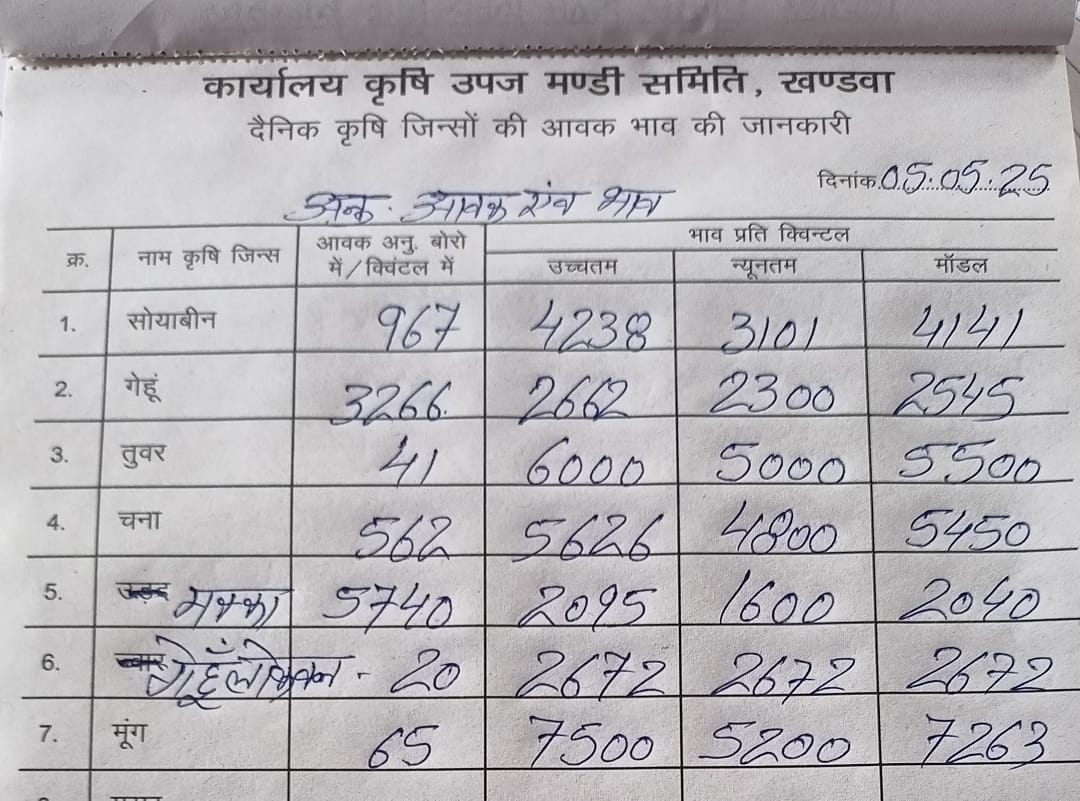 कार्यालय कृषि उपज मण्डी समिति, खण्डवा
दैनिक कृषि जिन्सों की आवक भाव की जानकारी
दिनांक 05.05.25
अनु. आवक एंव भाव
क्र. नाम कृषि जिन्स आवक अनु. बोरो में/क्विंटल में भाव प्रति क्विन्टल
उच्चतम न्यूनतम मॉडल
1. सोयाबीन 967 4238 3101 4141
2. गेहूं 3266 2662 2300 2545
3. तुवर 41 6000 5000 5500
4. चना 562 5626 4800 5450
5. मक्का 5740 2095 1600 2040
6. गेहूँ 20 2672 2672 2672
7. मूंग 65 7500 5200 7263